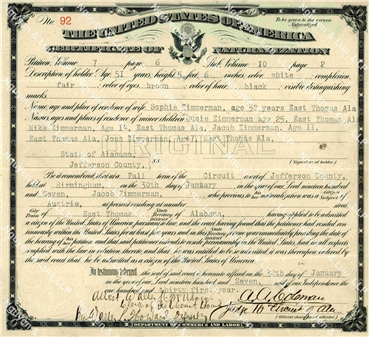 No. 92
To be given to the person Naturalized
THE UNITED STATES OF AMERICA
CERTIFICATE OF NATURALIZATION
Petition, Volume 7 page 6 Stub, Volume 10 page 2
Description of holder: Age, 51 years; height, 5 feet, 6 inches; color, white; complexion,
fair; color of eyes, brown; color of hair, black; visible distinguishing
marks
Name, age and place of residence of wife Sophie Zimmerman, age 52 years East Thomas Ala
Names, ages and places of residence of minor children Susie Zimmerman age 25, East Thomas Ala
Mike Zimmerman, Age 14, East Thomas Ala, Jacob Zimmerman, Age 11,
East Thomas Ala, Zimmerman, Age 7, East Thomas Ala.
ORIGINAL
State of Alabama,
Jefferson County, SS
(Signature of holder)
Be it remembered, that at a Fall term of the Circuit court of Jefferson County,
held at Birmingham, on the 30th day of January in the year of our Lord nineteen hundred
and Seven, Jacob Zimmerman, who previous to naturalization was a subject of
Austria, at present residing at number
East Thomas Alabama, having applied to be admitted
a citizen of the United States of America pursuant to law, and the court having found that the petitioner had resided
continuously within the United States for at least five years and in this
the hearing of petition, and that said petitioner intends to reside permanently in the United States, had in all respects
complied with the law in relation thereto, and that he was entitled to be so admitted, it was thereupon ordered by
the said court that he be admitted as a citizen of the United States of America.
In testimony whereof the seal of said court is hereunto affixed on the 30th day of January
in the year of our Lord nineteen hundred and Seven, and of our Independence the
one hundred and thirty first year.
Attest
Clerk of the Circuit Court
A. A. Coleman
Judge
DEPARTMENT OF COMMERCE AND LABOR